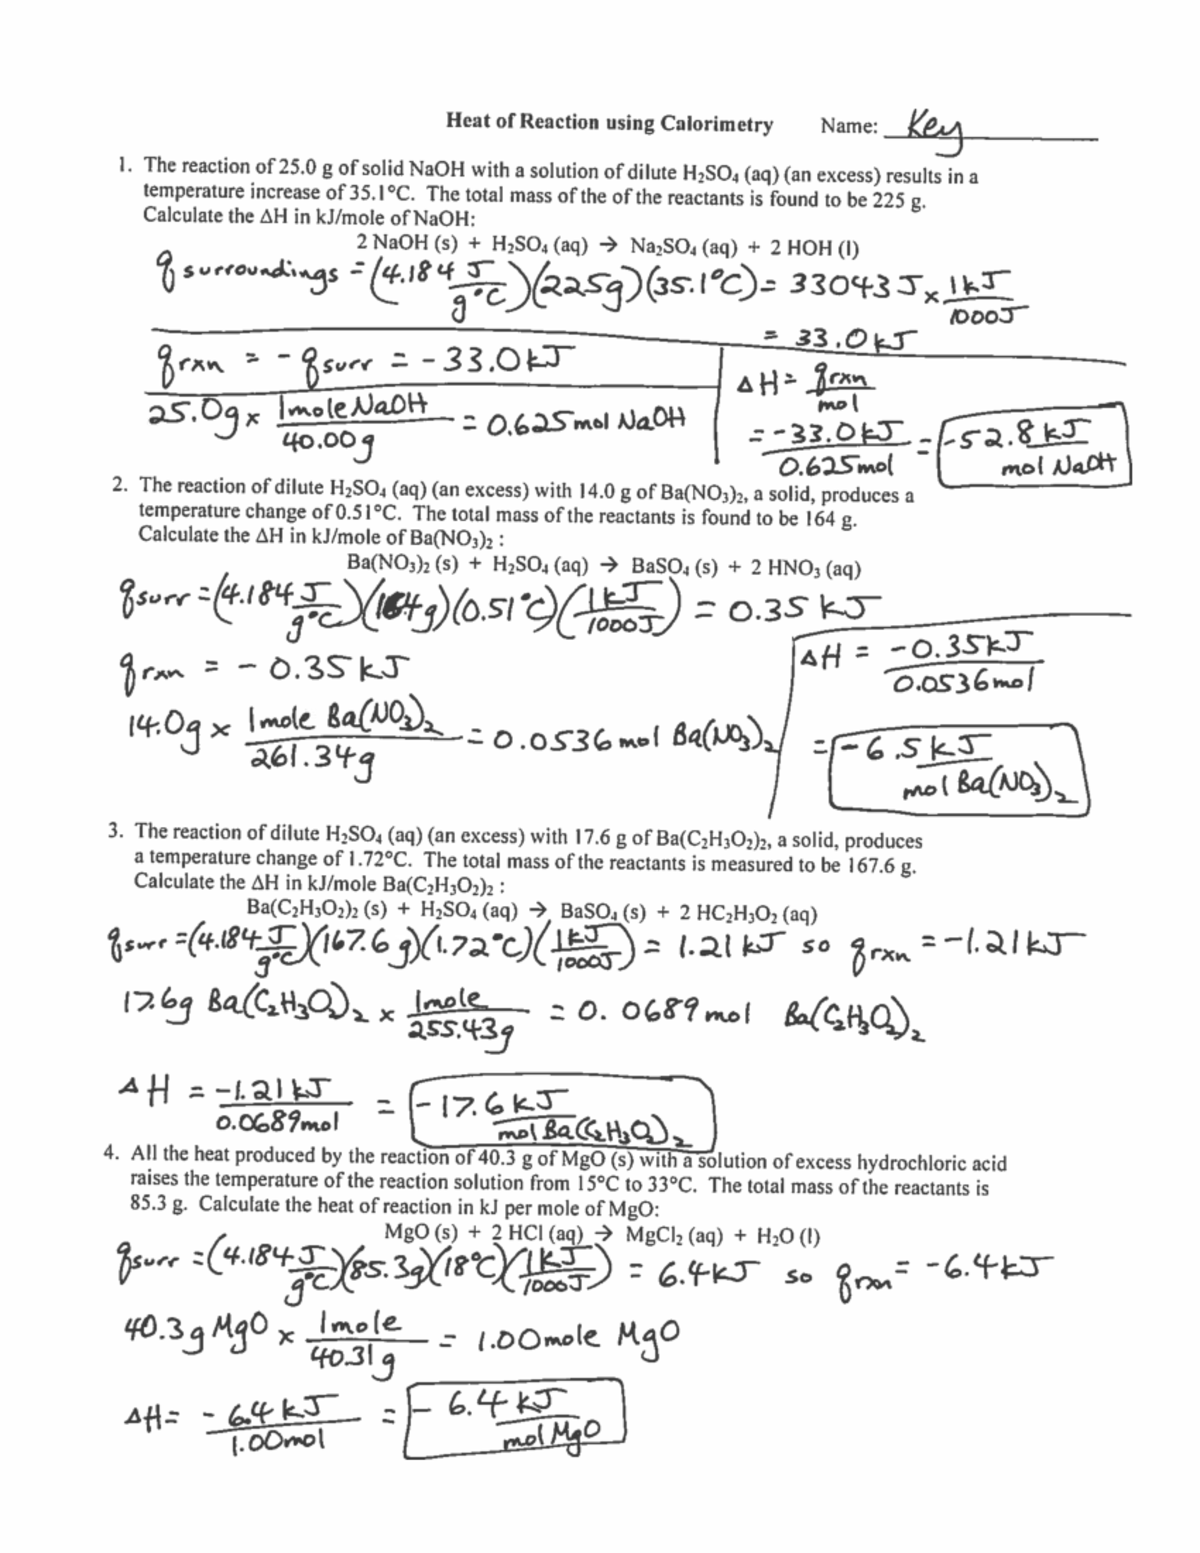 Heat of Reaction using Calorimetry Name: Key
1. The reaction of 25.0 g of solid NaOH with a solution of dilute H₂SO₄ (aq) (an excess) results in a
temperature increase of 35.1°C. The total mass of the of the reactants is found to be 225 g.
Calculate the ΔH in kJ/mole of NaOH:
2 NaOH (s) + H₂SO₄ (aq) → Na₂SO₄ (aq) + 2 HOH (l)
q surroundings = (4.184 J/g°C)(225g)(35.1°C) = 33043 J × 1kJ/1000J
= 33.0 kJ
q rxn = - q surr = - 33.0 kJ
25.0g × 1mole NaOH/40.00g = 0.625 mol NaOH
ΔH = q rxn/mol
= -33.0 kJ/0.625 mol = -52.8 kJ/mol NaOH
2. The reaction of dilute H₂SO₄ (aq) (an excess) with 14.0 g of Ba(NO₃)₂, a solid, produces a
temperature change of 0.51°C. The total mass of the reactants is found to be 164 g.
Calculate the ΔH in kJ/mole of Ba(NO₃)₂ :
Ba(NO₃)₂ (s) + H₂SO₄ (aq) → BaSO₄ (s) + 2 HNO₃ (aq)
q surr = (4.184 J/g°C)(164g)(0.51°C)(1kJ/1000J) = 0.35 kJ
q rxn = - 0.35 kJ
14.0g × 1mole Ba(NO₃)₂/261.34g = 0.0536 mol Ba(NO₃)₂
ΔH = -0.35 kJ/0.0536 mol
= -6.5 kJ/mol Ba(NO₃)₂
3. The reaction of dilute H₂SO₄ (aq) (an excess) with 17.6 g of Ba(C₂H₃O₂)₂, a solid, produces
a temperature change of 1.72°C. The total mass of the reactants is measured to be 167.6 g.
Calculate the ΔH in kJ/mole Ba(C₂H₃O₂)₂ :
Ba(C₂H₃O₂)₂ (s) + H₂SO₄ (aq) → BaSO₄ (s) + 2 HC₂H₃O₂ (aq)
q surr = (4.184 J/g°C)(167.6 g)(1.72°C)(1kJ/1000J) = 1.21 kJ so q rxn = -1.21 kJ
17.6g Ba(C₂H₃O₂)₂ × 1mole/255.43g = 0.0689 mol Ba(C₂H₃O₂)₂
ΔH = -1.21 kJ/0.0689 mol = -17.6 kJ/mol Ba(C₂H₃O₂)₂
4. All the heat produced by the reaction of 40.3 g of MgO (s) with a solution of excess hydrochloric acid
raises the temperature of the reaction solution from 15°C to 33°C. The total mass of the reactants is
85.3 g. Calculate the heat of reaction in kJ per mole of MgO:
MgO (s) + 2 HCl (aq) → MgCl₂ (aq) + H₂O (l)
q surr = (4.184 J/g°C)(85.3g)(18°C)(1kJ/1000J) = 6.4 kJ so q rxn = -6.4 kJ
40.3 g MgO × 1mole/40.31 g = 1.00 mole MgO
ΔH = -6.4 kJ/1.00 mol = -6.4 kJ/mol MgO